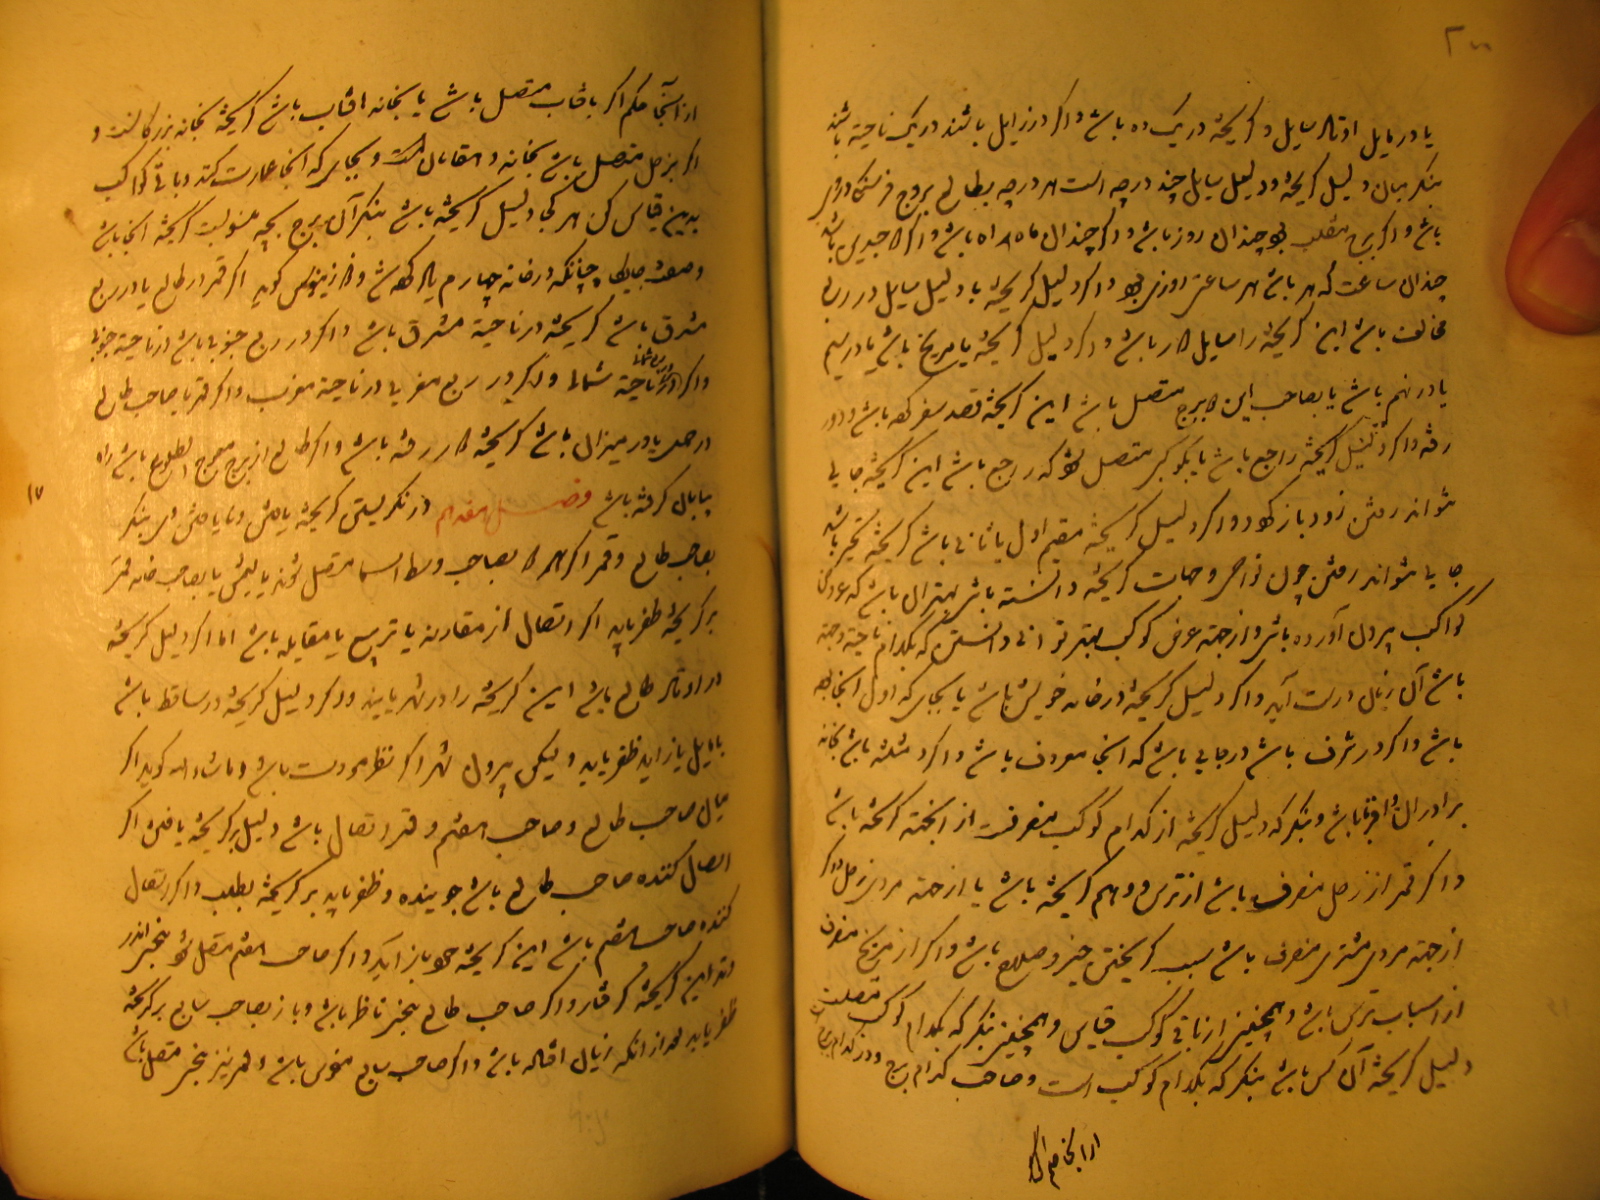 یا در مایل اوتاد سایل و کریخته در یک ده باشد و اکر در زایل باشند در یک ناحیة باشند
بنکر میان دلیل کریخته و دلیل سایل چند درجه است هر درجه بطالع بروج فرسنکی
باشد و اکر برج منقلب بود چندان روز باشد و اکر چندان ماه راه باشد و اکر
چندان ساعت که هر باشد هر ساعتی روزی بود و اکر دلیل کریخته با دلیل سایل در ربع
مخالف باشد این کریخته را سایل باشد و اکر دلیل کریخته با مریخ باشد یا در سیم
یا در نهم باشد یا بصاحب این برج متصل باشد این کریخته قصد سفر کرده باشد و دور
رفته و اکر دلیل کریخته راجع باشد یا بکوکبی متصل بود که راجع باشد این کریخته جایی
نتواند رفتن زود باز کردد و اکر دلیل کریخته مقیم اول یا ثانی باشد کریخته متحیر باشد
جایی نتواند رفتن چون نواحی و جهات کریخته دانسته باشی بهتر آن باشد که عرض
کواکب بیرون آورده باشی و از جهة عرض کوکب بهتر توانی دانستن که بکدام ناحیة و جهة
باشد آن زمان درست آید و اکر دلیل کریخته در خانه خویش باشد یا بجای که اول آنجا بوده
باشد و اکر در شرف باشد در جایی باشد که آنجا معروف باشد و اکر در مثلثه باشد بخانه
برادران و اقربا باشد و بنکر که دلیل کریخته از کدام کوکب منصرفست از آنجه کریخته باشد
و اکر قمر از زحل منصرف باشد از ترس و وهم کریخته باشد یا از جهة مردی زحل و اکر
از جهة مردی مشتری منصرف باشد سبب کریختن خیر و صلاح باشد و اکر از مریخ منصرف
از اسباب ترس باشد و همچنین از باقی کوکب قیاس و همچنین بنکر که بکدام کوکب متصلست
دلیل کریخته آن کس باشد بنکر که بکدام کوکب است و صاحب کدام برج و در کدام برج
از آنجا حکم اکر
از آنجا حکم اکر بافتاب متصل باشد یا بخانه افتاب باشد کریخته بخانه بزرکانست و
اکر بزحل متصل باشد بخانه دهقانان است و بجای که آنجا عمارت کنند و باقی کواکب
بدین قیاس کن هر کجا دلیل کریخته باشد بنکر آن برج بچه منسوبست کریخته آنجا باشد
و صفت جایکاه چنانکه در خانه چهارم یاد کرده شد اکر قمر در طالع یا در ربع
مشرق باشد کریخته در ناحیة مشرق باشد و اکر در ربع جنوبی باشد از ناحیة جنوب
و اکر در ربع شمالی ناحیة شمال و اکر در ربع مغربی در ناحیة مغرب و اکر قمر با صاحب طالع
در حمل یا در میزان باشد کریخته رفته باشد و اکر طالع از برج معوج الطلوع باشد راه
بیابان کرفته باشد فصل هفدهم در نکریستن کریخته یافتن و نایافتن وی بنکر
۱۷
بصاحب طالع و قمر اکر هر بصاحب وسط السما متصل شوند یا بصاحب خانه قمر
بر کریخته ظفر یابد اکر اتصال از مقارنه یا تربیع یا مقابله باشد اما اکر دلیل کریخته
در اوتاد طالع باشد این کریخته را در شهر یابند و اکر دلیل کریخته در ساقط باشد
یا مایل یا زاید ظفر یابد ولیکن بیرون شهر اکر نظر مودت باشد و ماشاءالله کوید اکر
میان صاحب طالع و صاحب هفتم و قمر اتصال باشد دلیل بر کریخته یافتن اکر
اتصال کننده صاحب طالع باشد جوینده ظفر یابد بر کریخته بطلب و اکر اتصال
کننده صاحب هفتم باشد این کریخته خود باز آید و اکر صاحب هفتم متصل بود بنحس اندر
وتد این کریخته کرفتار و اکر صاحب طالع بنحس ناظر باشد و باز بصاحب سابع بر کریخته
ظفر یابد بعد از آنکه زیان افتاده باشد و اکر صاحب سابع منحوس باشد و قمر نیز بنحس متصل باشد